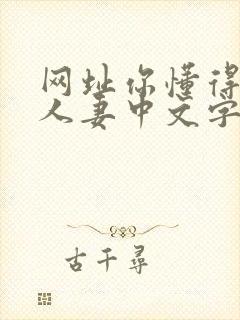 网址你懂得
人妻中文字
古千尋